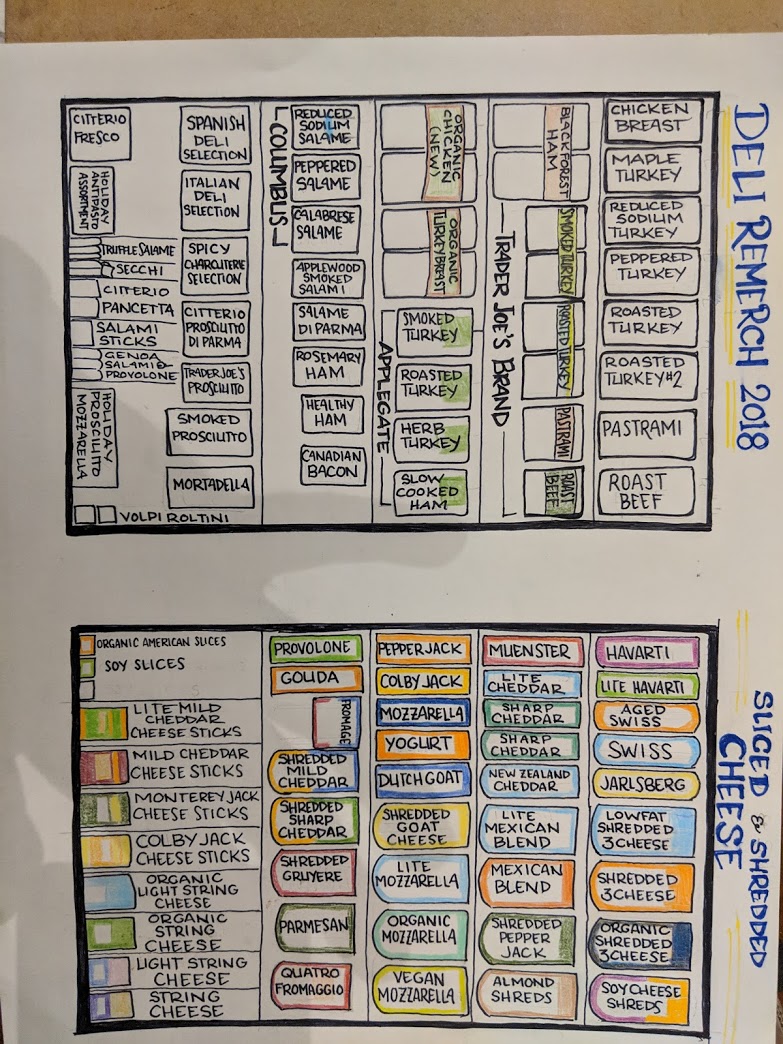 DELI REMERCH 2018
CHICKEN
BREAST
MAPLE
TURKEY
REDUCED
SODIUM
TURKEY
PEPPERED
TURKEY
ROASTED
TURKEY
ROASTED
TURKEY#2
PASTRAMI
ROAST
BEEF
BLACK FOREST
HAM
SMOKED TURKEY
ROASTED TURKEY
PASTRAMI
ROAST
BEEF
TRADER JOE'S BRAND
ORGANIC
CHICKEN
(NEW)
ORGANIC
TURKEY BREAST
SMOKED
TURKEY
ROASTED
TURKEY
HERB
TURKEY
SLOW
COOKED
HAM
APPLEGATE
REDUCED
SODIUM
SALAME
PEPPERED
SALAME
CALABRESE
SALAME
COLUMBUS
APPLEWOOD
SMOKED
SALAMI
SALAME
DI PARMA
ROSEMARY
HAM
HEALTHY
HAM
CANADIAN
BACON
SPANISH
DELI
SELECTION
ITALIAN
DELI
SELECTION
SPICY
CHARCUTERIE
SELECTION
CITTERIO
PROSCIUTTO
DI PARMA
TRADER JOE'S
PROSCIUTTO
SMOKED
PROSCIUTTO
MORTADELLA
CITTERIO
FRESCO
HOLIDAY
ANTIPASTO
ASSORTMENT
TRUFFLE SALAME
SECCHI
CITTERIO
PANCETTA
SALAMI
STICKS
GENOA
SALAMI &
PROVOLONE
HOLIDAY
PROSCIUTTO
MOZZARELLA
VOLPI ROLTINI
SLICED & SHREDDED
CHEESE
HAVARTI
LITE HAVARTI
AGED
SWISS
SWISS
JARLSBERG
LOWFAT
SHREDDED
3 CHEESE
SHREDDED
3 CHEESE
ORGANIC
SHREDDED
3 CHEESE
SOY CHEESE
SHREDS
MUENSTER
LITE
CHEDDAR
SHARP
CHEDDAR
SHARP
CHEDDAR
NEW ZEALAND
CHEDDAR
LITE
MEXICAN
BLEND
MEXICAN
BLEND
SHREDDED
PEPPER
JACK
ALMOND
SHREDS
PEPPER JACK
COLBY JACK
MOZZARELLA
YOGURT
DUTCH GOAT
SHREDDED
GOAT
CHEESE
LITE
MOZZARELLA
ORGANIC
MOZZARELLA
VEGAN
MOZZARELLA
PROVOLONE
GOUDA
FROMAGE
SHREDDED
MILD
CHEDDAR
SHREDDED
SHARP
CHEDDAR
SHREDDED
GRUYERE
PARMESAN
QUATRO
FROMAGGIO
ORGANIC AMERICAN SLICES
SOY SLICES
LITE MILD
CHEDDAR
CHEESE STICKS
MILD CHEDDAR
CHEESE STICKS
MONTEREY JACK
CHEESE STICKS
COLBY JACK
CHEESE STICKS
ORGANIC
LIGHT STRING
CHEESE
ORGANIC
STRING
CHEESE
LIGHT STRING
CHEESE
STRING
CHEESE